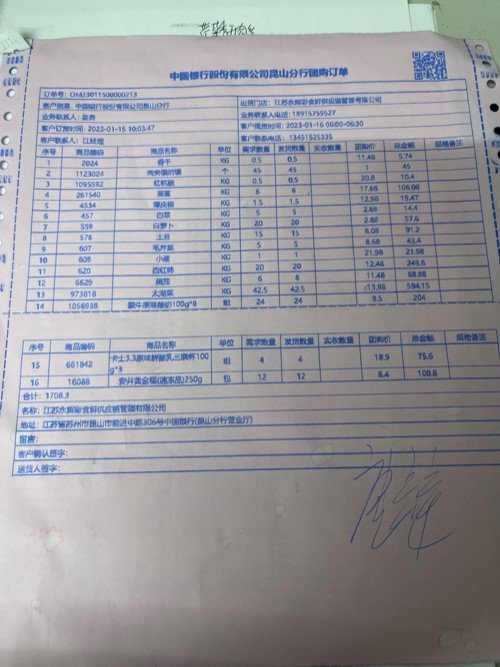 中国银行股份有限公司昆山分行团购订单
订单号：OM23011500000213
客户信息：中国银行股份有限公司昆山分行 出货门店：江苏永辉彩食鲜供应链管理有限公司
业务联系人：姜勇 业务联系人电话：18915759527
客户订货时间：2023-01-15 10:03:47 客户提货时间：2023-01-16 06:00-06:30
客户联系人： 客户联系电话：13451525335
序号 商品编码 商品名称 单位 需求数量 发货数量 实收数量 团购价 总金额 规格备注
1 2024 香干 KG 0.5 0.5 11.48 5.74
2 1123024 个 45 45 1 45
3 1095592 红杭椒 KG 0.5 0.5 20.8 10.4
4 261540 KG 6 6 17.68 106.08
5 4534 薄皮椒 KG 1.5 1.5 12.98 19.47
6 457 白菜 KG 5 5 2.88 14.4
7 559 白萝卜 KG 20 20 2.88 57.6
8 578 土豆 KG 15 15 6.08 91.2
9 607 毛芹菜 KG 5 5 8.68 43.4
10 609 小葱 KG 1 1 21.98 21.98
11 620 西红柿 KG 20 20 12.48 249.6
12 6629 KG 6 6 11.48 68.88
13 973818 太湖粳 KG 42.5 42.5 13.98 594.15
14 1056938 酸牛奶100g*8 组 24 24 8.5 204
序号 商品编码 商品名称 单位 需求数量 发货数量 实收数量 团购价 总金额 规格备注
15 661842 卡士3.3原味鲜酪乳三联杯100g*3 组 4 4 18.9 75.6
16 16088 安井黄金糕(速冻品)250g 包 12 12 8.4 100.8
合计：1708.3
名称：江苏永辉彩食鲜供应链管理有限公司
地址：江苏省苏州市昆山市前进中路306号中国银行(昆山分行营业厅)
留言：
客户确认签字：
送货人签字：